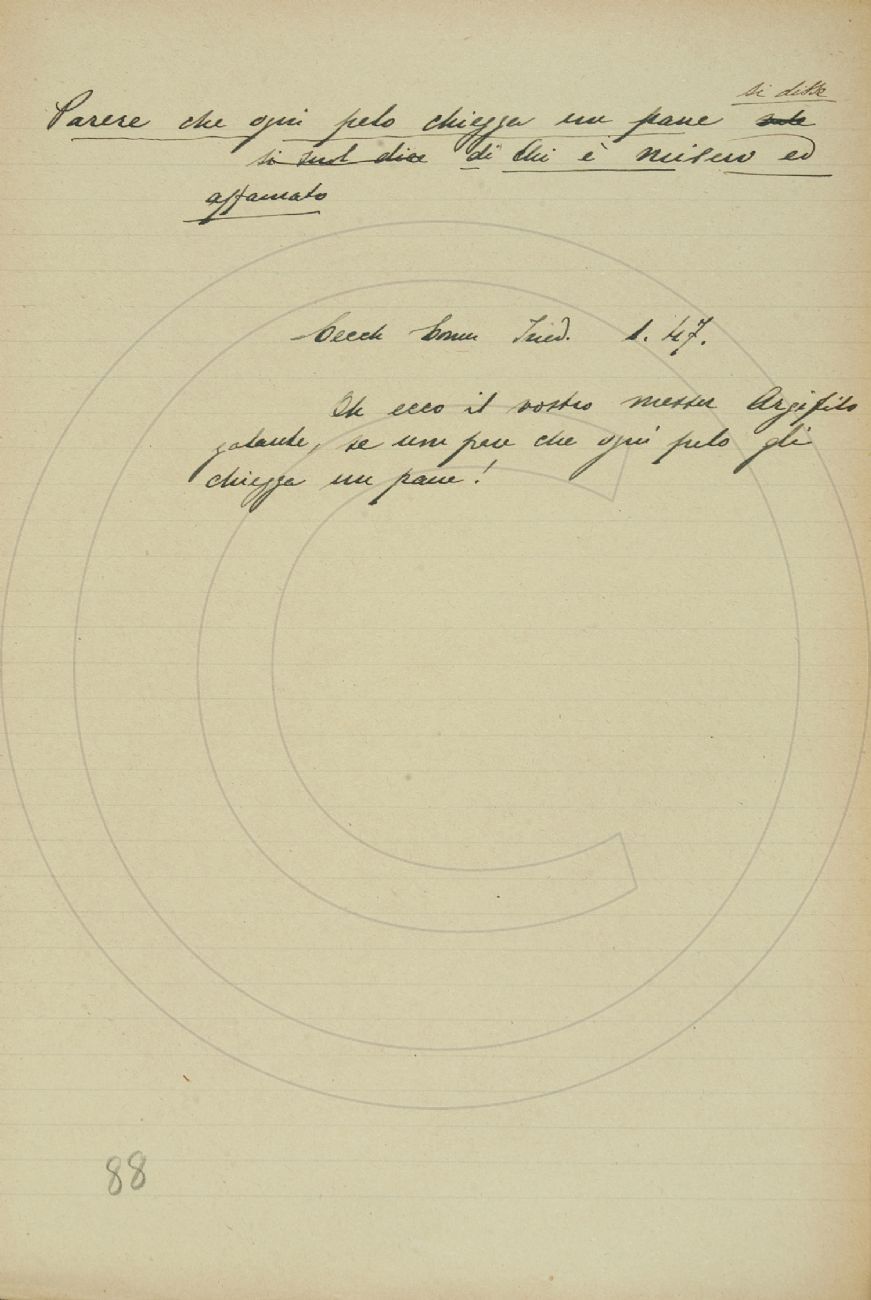 si disse
Parere che ogni pelo chiegga un pane
si suol dice di chi è misero ed
affamato
Cecch Comm Ined. 1. 47.
Oh ecco il vostro messer Argifilo
galante, se um pare che ogni pelo gli
chiegga un pane!
88